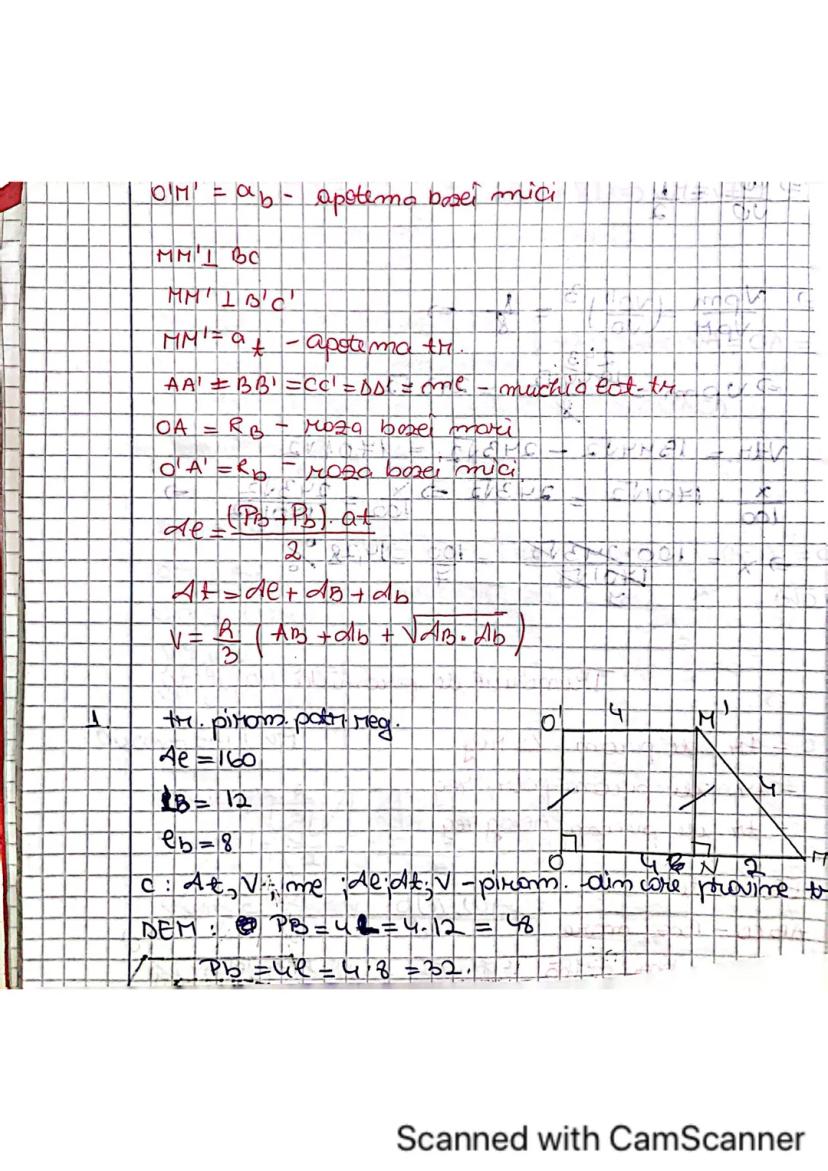 O'M' = ab - apotema bazei mici
MM' ⊥ BC
MM' ⊥ B'C'
MM' = at - apotema tr.
AA' = BB' = CC' = DD' = me - muchia lat. tr.
OA = RB - raza bazei mari
O'A' = Rb - raza bazei mici
Al = (PB + Pb) · at / 2
At = Al + AB + Ab
V = h/3 (AB + Ab + √AB · Ab)
1. tr. piram. patr. reg.
Al = 160
LB = 12
lb = 8
O' 4 M'
4
O 4 N 2 M
C: At, V, me; Al; At; V - piram. din care provine tr
DEM: PB = 4L = 4·12 = 48
Pb = 4l = 4·8 = 32.
Scanned with CamScanner